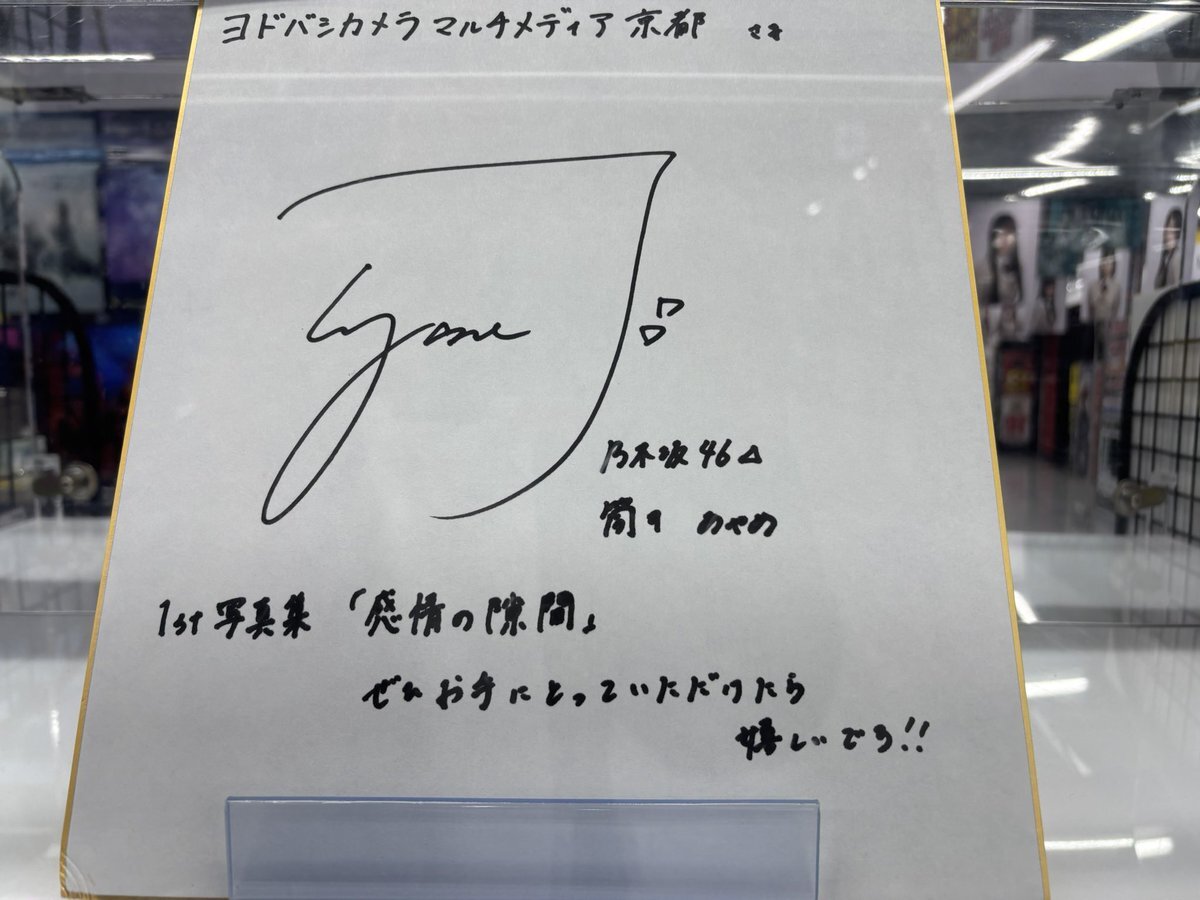 ヨドバシカメラ マルチメディア 京都 さま
Ayame
乃木坂46
筒井 あやめ
1st 写真集 「感情の隙間」
ぜひ お手にとっていただけたら
嬉しいです!!